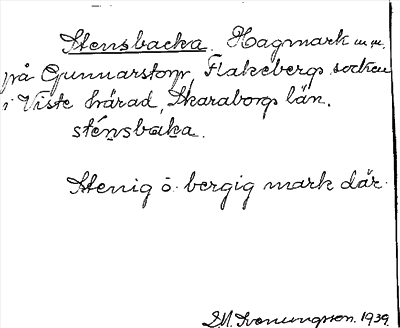 Stensbacka. Hagmark m.m.
på Gunnarstorp, Flakebergs socken
i Viste härad, Skaraborgs län.
sténsbaka.
Stenig o. bergig mark där.
Svenungsson. 1939.